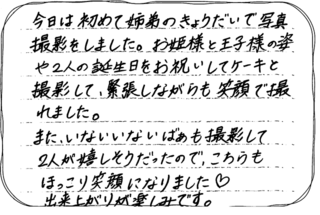 今日は初めて姉弟のきょうだいで写真
撮影をしました。お姫様と王子様の姿
や2人の誕生日をお祝いしてケーキと
撮影して、緊張しながらも笑顔で撮
れました。
また、いないいないばぁも撮影して
2人が嬉しそうだったので、こちらも
ほっこり笑顔になりました♡
出来上がりが楽しみです。